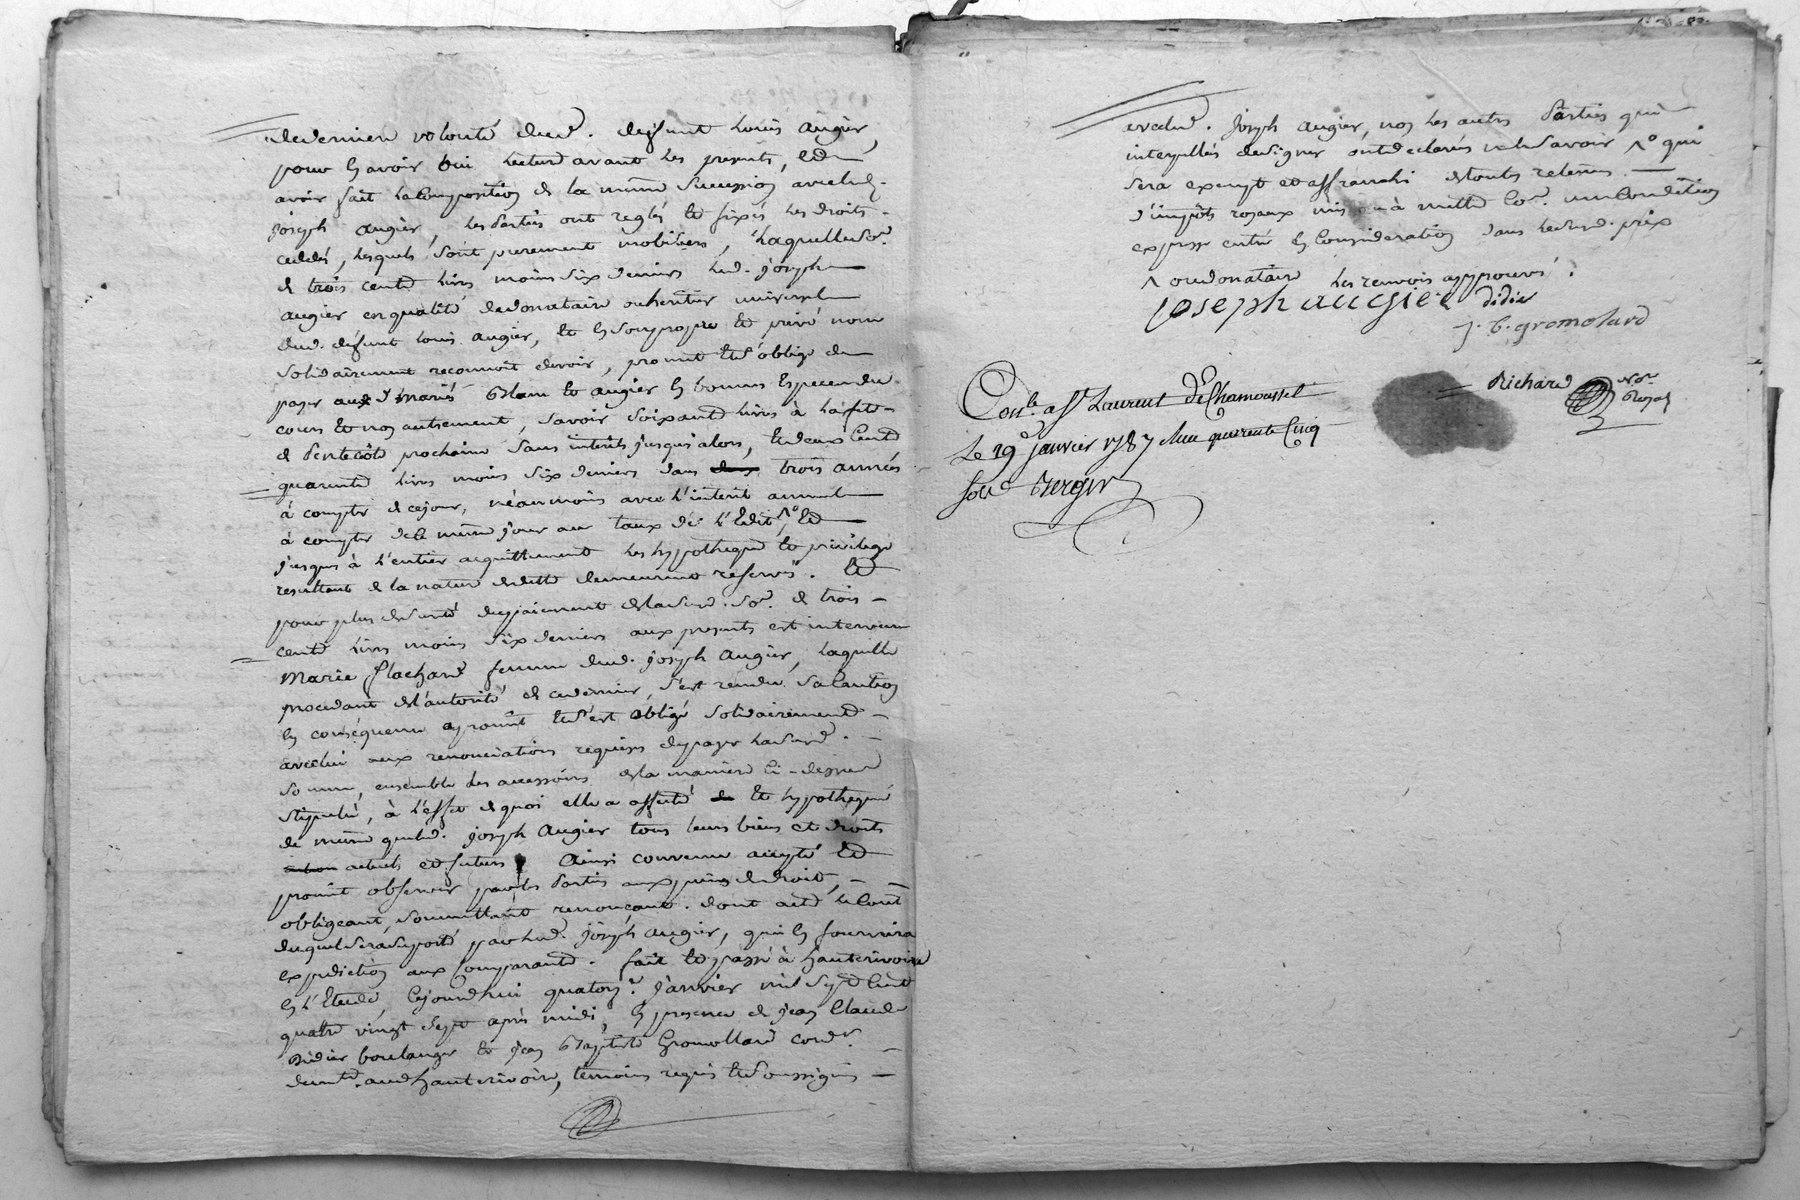 de derniere volonté dud. deffunt Louis augier,
pour en avoir oui lecture avant les presents, et
avoir fait la composition de la même succession avec led.
joseph augier, les Parties ont reglés et fixés les droits
cedés, lesquels sont purement mobiliers, à laquelle So.e
de trois cents livres moins six deniers led. joseph
augier en qualité de donataire ou heritier universel
dud. deffunt Louis augier, et en son propre et privé nom
solidairement reconnoit devoir, promet et s'oblige de
payer auxd. mariés Blanc et augier en bonnes Especes du
cours et non autrement, Savoir soixante livres à la fete
de Pentecôte prochaine sans interets jusqu'alors, et deux Cents
quarante livres moins six deniers dans trois années
à compter de ce jour, néanmoins avec l'interet annuel
à compter de ce même jour au taux de l'Edit, ^o et
jusques à l'entier acquittement les hypotheque et privilege
resultant de la nature de dette demeurant reservés. Et
pour plus de sureté du paiement de lad. So.e de trois
cents livres moins six deniers aux presents est intervenue
Marie flachard femme dud. joseph augier, laquelle
procedant de l'autorité de ce dernier, s'est rendue sa Caution
en consequence a promit et s'est obligé solidairement
avec lui aux renonciations requises de payer lad.
somme, ensemble les accessoires de la maniere ci-dessus
stipulée, à l'effet de quoi elle a affecté et hypothequé
de même que led. joseph augier tous leurs biens et droits
actuels et futurs Ainsi convenu accepté et
promit observer par les Parties aux peines de droit,
obligeant, soumettant renonçant. dont acte le Cout
duquel sera suporté par led. joseph augier, qui en fournira
expedition aux Comparants. fait et passé à hauterivoire
en l'Etude, cejourd'hui quatorz.e janvier mil Sept Cent
quatre vingt Sept après midi, en presence de jean Claude
Didier boulanger et jean Baptiste Gromollard cord.r
demt. aud hauterivoire, témoins requis et soussignés
avec led. joseph augier, non les autres Parties qui
interpellés de signer ont declarés ne le savoir ^o qui
sera exempt et affranchi de toutes retenues
d'impôts royaux
expresse entré en Consideration dans led. prix
^ ou donataire les renvois approuvés.
joseph augier didier
j. b. gromolard
Richard No.re Royal
Con.lé a St Laurent De Chamousset
Le 19 janvier 1787 quarente Cinq
sols Berger